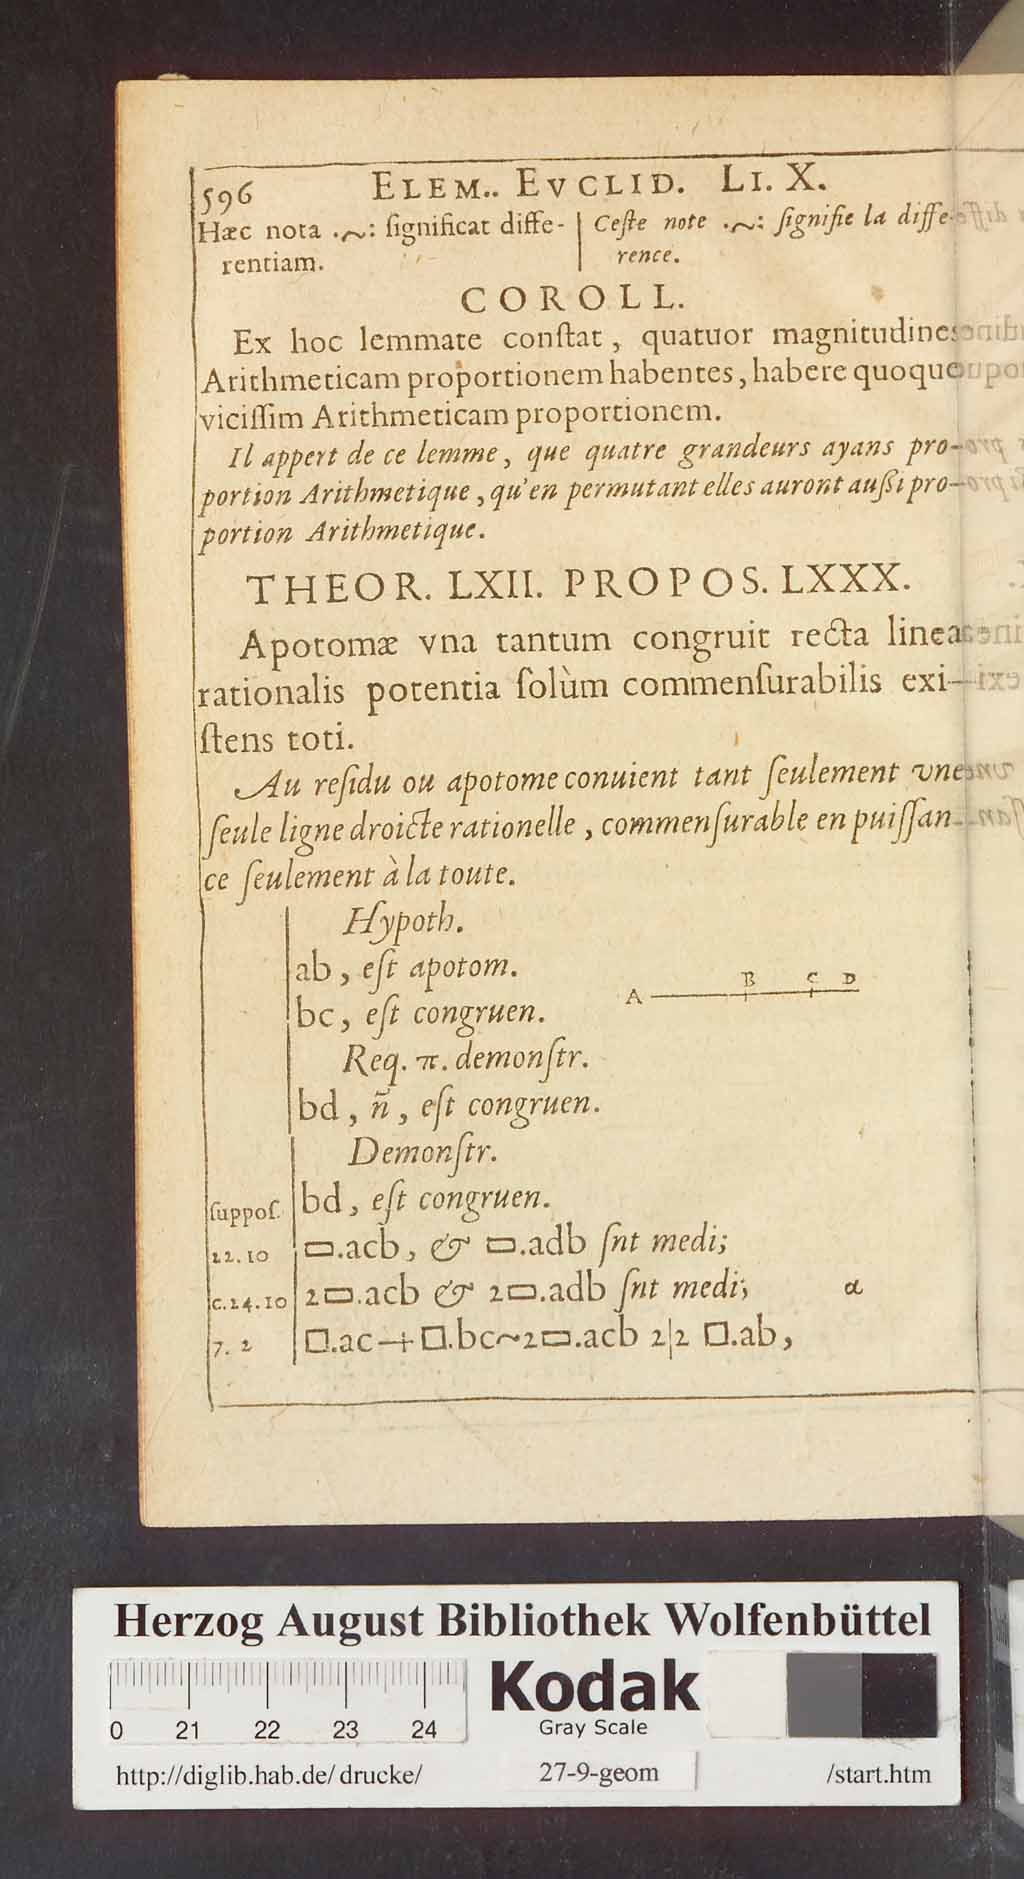 596 ELEM.. EVCLID. LI. X.
Hæc nota .~: ſignificat diffe-
rentiam.
Ceſte note .~: ſignifie la diffe-
rence.
COROLL.
Ex hoc lemmate conſtat, quatuor magnitudines
Arithmeticam proportionem habentes, habere quoque
viciſſim Arithmeticam proportionem.
Il appert de ce lemme, que quatre grandeurs ayans pro-
portion Arithmetique, qu'en permutant elles auront außi pro-
portion Arithmetique.
THEOR. LXII. PROPOS. LXXX.
Apotomæ vna tantum congruit recta linea
rationalis potentia ſolùm commenſurabilis exi-
ſtens toti.
Au reſidu ou apotome conuient tant ſeulement vne
ſeule ligne droicte rationelle, commenſurable en puiſſan-
ce ſeulement à la toute.
Hypoth.
ab, eſt apotom.
A B C D
bc, eſt congruen.
Req. π. demonſtr.
bd, ñ, eſt congruen.
Demonſtr.
ſuppoſ. bd, eſt congruen.
22.10 ▭.acb, & ▭.adb ſnt medi;
c.24.10 2▭.acb & 2▭.adb ſnt medi; α
7. 2 □.ac+□.bc~2▭.acb 2|2 □.ab,
Herzog August Bibliothek Wolfenbüttel
0 21 22 23 24
Kodak
Gray Scale
http://diglib.hab.de/drucke/ 27-9-geom /start.htm